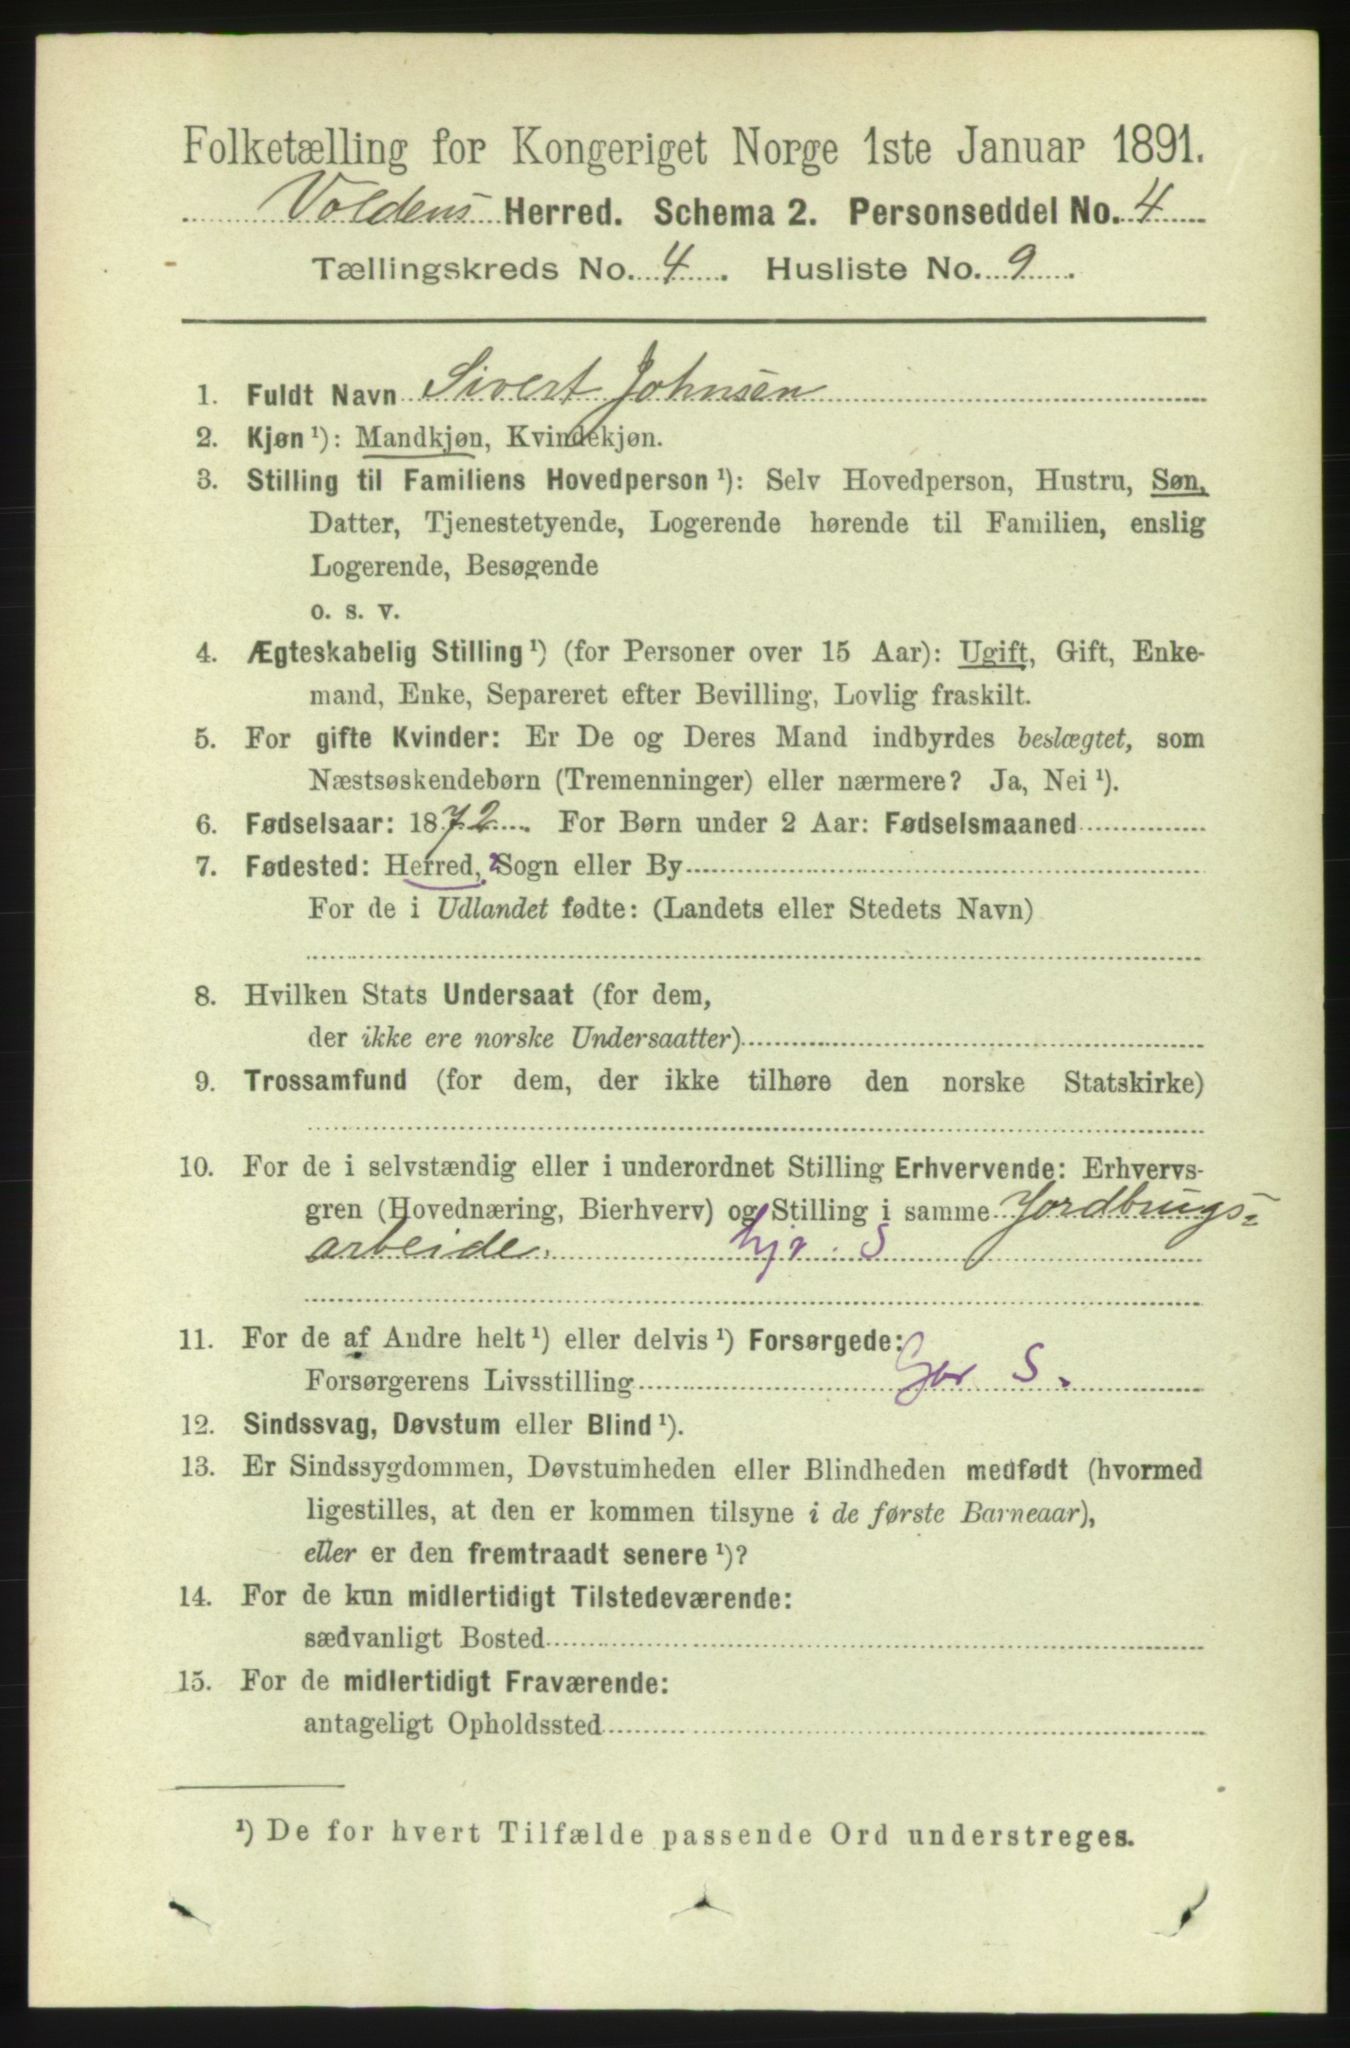 Folketælling for Kongeriget Norge 1ste Januar 1891.
Voldens Herred. Schema 2. Personseddel No. 4
Tællingskreds No. 4. Husliste No. 9.
1. Fuldt Navn Sivert Johnsen
2. Kjøn ¹): Mandkjøn, Kvindekjøn.
3. Stilling til Familiens Hovedperson ¹): Selv Hovedperson, Hustru, Søn,
Datter, Tjenestetyende, Logerende hørende til Familien, enslig
Logerende, Besøgende
o. s. v.
4. Ægteskabelig Stilling ¹) (for Personer over 15 Aar): Ugift, Gift, Enke-
mand, Enke, Separeret efter Bevilling, Lovlig fraskilt.
5. For gifte Kvinder: Er De og Deres Mand indbyrdes beslægtet, som
Næstsøskendebørn (Tremenninger) eller nærmere? Ja, Nei ¹).
6. Fødselsaar: 1872. For Børn under 2 Aar: Fødselsmaaned
7. Fødested: Herred, Sogn eller By
For de i Udlandet fødte: (Landets eller Stedets Navn)
8. Hvilken Stats Undersaat (for dem,
der ikke ere norske Undersaatter)
9. Trossamfund (for dem, der ikke tilhøre den norske Statskirke)
10. For de i selvstændig eller i underordnet Stilling Erhvervende: Erhvervs-
gren (Hovednæring, Bierhverv) og Stilling i samme Jordbrugs-
arbeide. hjr. S
11. For de af Andre helt ¹) eller delvis ¹) Forsørgede:
Forsørgerens Livsstilling S.
12. Sindssvag, Døvstum eller Blind ¹).
13. Er Sindssygdommen, Døvstumheden eller Blindheden medfødt (hvormed
ligestilles, at den er kommen tilsyne i de første Barneaar),
eller er den fremtraadt senere ¹)?
14. For de kun midlertidigt Tilstedeværende:
sædvanligt Bosted
15. For de midlertidigt Fraværende:
antageligt Opholdssted
¹) De for hvert Tilfælde passende Ord understreges.